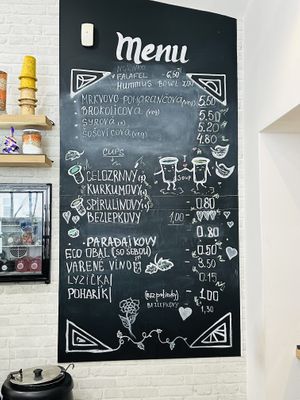 Menu
FALAFEL - 6,50
Hummus BOWL
MRKVOVO-POMARANČOVÁ (veg) 5.50
BROKOLICOVÁ (veg) 5.50
SYROVÁ 5.20
ŠOŠOVICOVÁ (veg) 4.80
CUPS
SOUP
CELOZRNNÝ
KURKUMOVÝ
ŠPIRULINOVÝ 0.80
BEZLEPKOVÝ 1.00
PARADAJKOVÝ 0.80
ECO OBAL (SO SEBOU) 0.50
VARENÉ VÍNO 3.50
LYZIČKA 0.15
POHÁRIK 1.00
BEZLEPKOVÝ 1,30